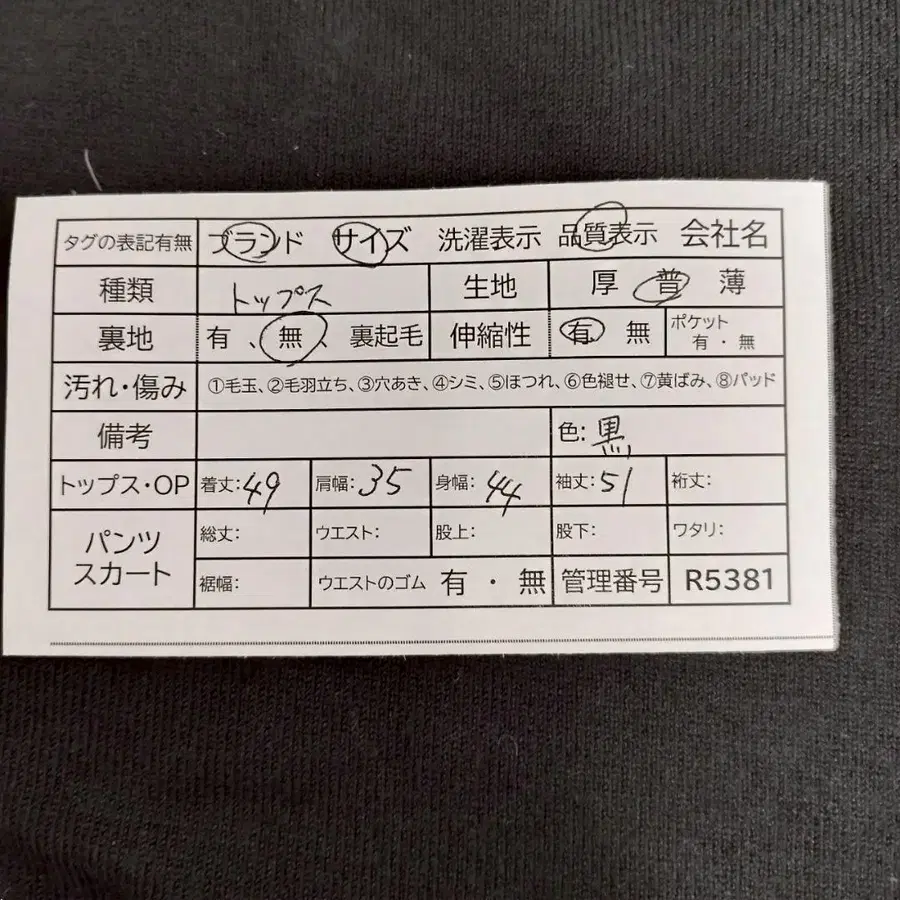 タグの表記有無 ブランド サイズ 洗濯表示 品質表示 会社名
種類 トップス 生地 厚 普 薄
裏地 有 、 無 、 裏起毛 伸縮性 有 無 ポケット 有・無
汚れ・傷み ①毛玉、②毛羽立ち、③穴あき、④シミ、⑤ほつれ、⑥色褪せ、⑦黄ばみ、⑧パッド
備考 色: 黒
トップス・OP 着丈:49 肩幅:35 身幅:44 袖丈:51 裄丈:
パンツ スカート 総丈: ウエスト: 股上: 股下: ワタリ:
裾幅: ウエストのゴム 有 ・ 無 管理番号 R5381